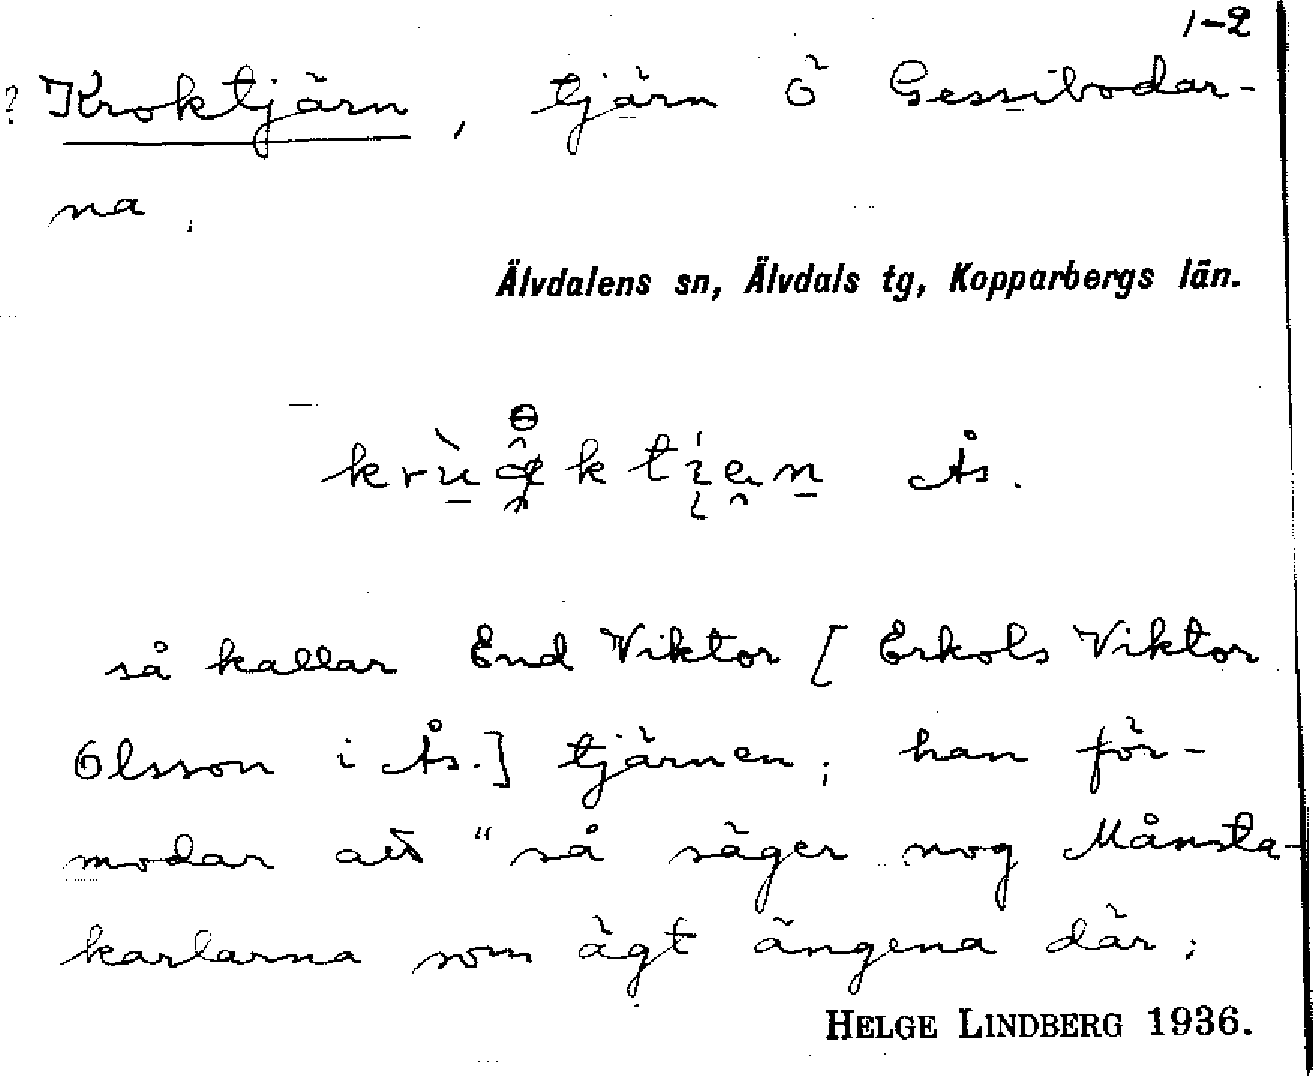 1-2
? Kroktjärn, tjärn Ö Gessibodar-
na.
Älvdalens sn, Älvdals tg, Kopparbergs län.
Ås.
så kallar End Viktor [ Erkols Viktor
Olsson i Ås.] tjärnen; han för-
modar att "så säger nog Månsta-
karlarna som ägt ängena där;
HELGE LINDBERG 1936.